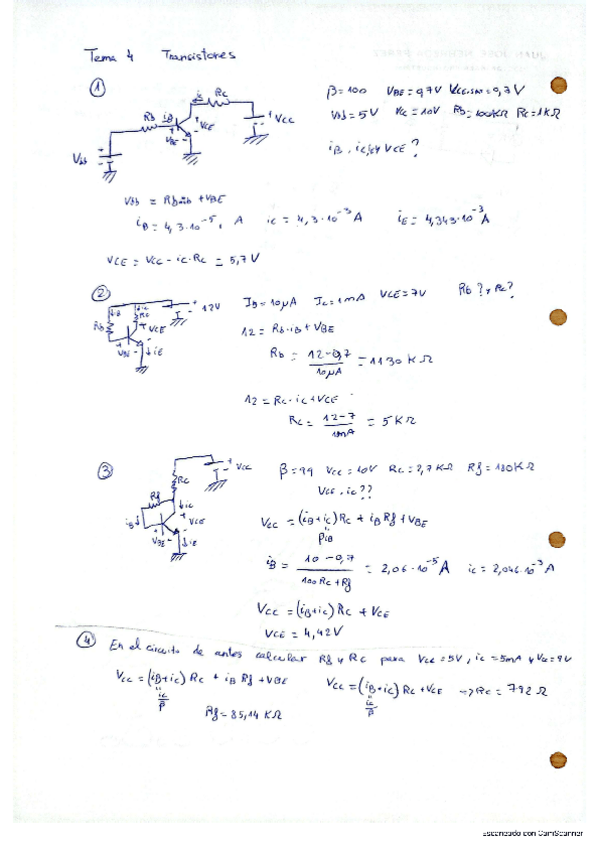 Tema 4 Transistores
①
β=100 VBE=0,7V VCE,sat=0,7V
Vbb=5V VCC=10V Rb=100KΩ RC=1KΩ
iB, iC y VCE?
Rb iB iC RC VCE VBE VCC Vbb
Vbb = Rb·ib + VBE
iB = 4,3·10⁻⁵ A iC = 4,3·10⁻³ A iE = 4,343·10⁻³ A
VCE = VCC - iC·RC = 5,7V
②
12V iB iC RC Rb VCE iE
IB=10μA IC=1mA VCE=7V Rb? y RC?
12 = Rb·iB + VBE
Rb = (12-0,7)/10μA = 1130 KΩ
12 = RC·iC + VCE
RC = (12-7)/1mA = 5KΩ
③
VCC RC Rf iC iB VCE VBE iE
β=99 VCC=10V RC=2,7KΩ Rf=180KΩ
VCE, iC??
VCC = (iB+iC)RC + iB Rf + VBE
βiB
iB = (10-0,7)/(100RC+Rf) = 2,06·10⁻⁵ A iC = 2,046·10⁻³ A
VCC = (iB+iC) RC + VCE
VCE = 4,42V
④ En el circuito de antes calcular Rf y RC para VCE=5V, iC=5mA y VCC=9V
VCC = (iB+iC) RC + iB Rf + VBE VCC = (iB+iC) RC + VCE → RC = 792 Ω
iC/β iC/β
Rf = 85,14 KΩ
Escaneado con CamScanner